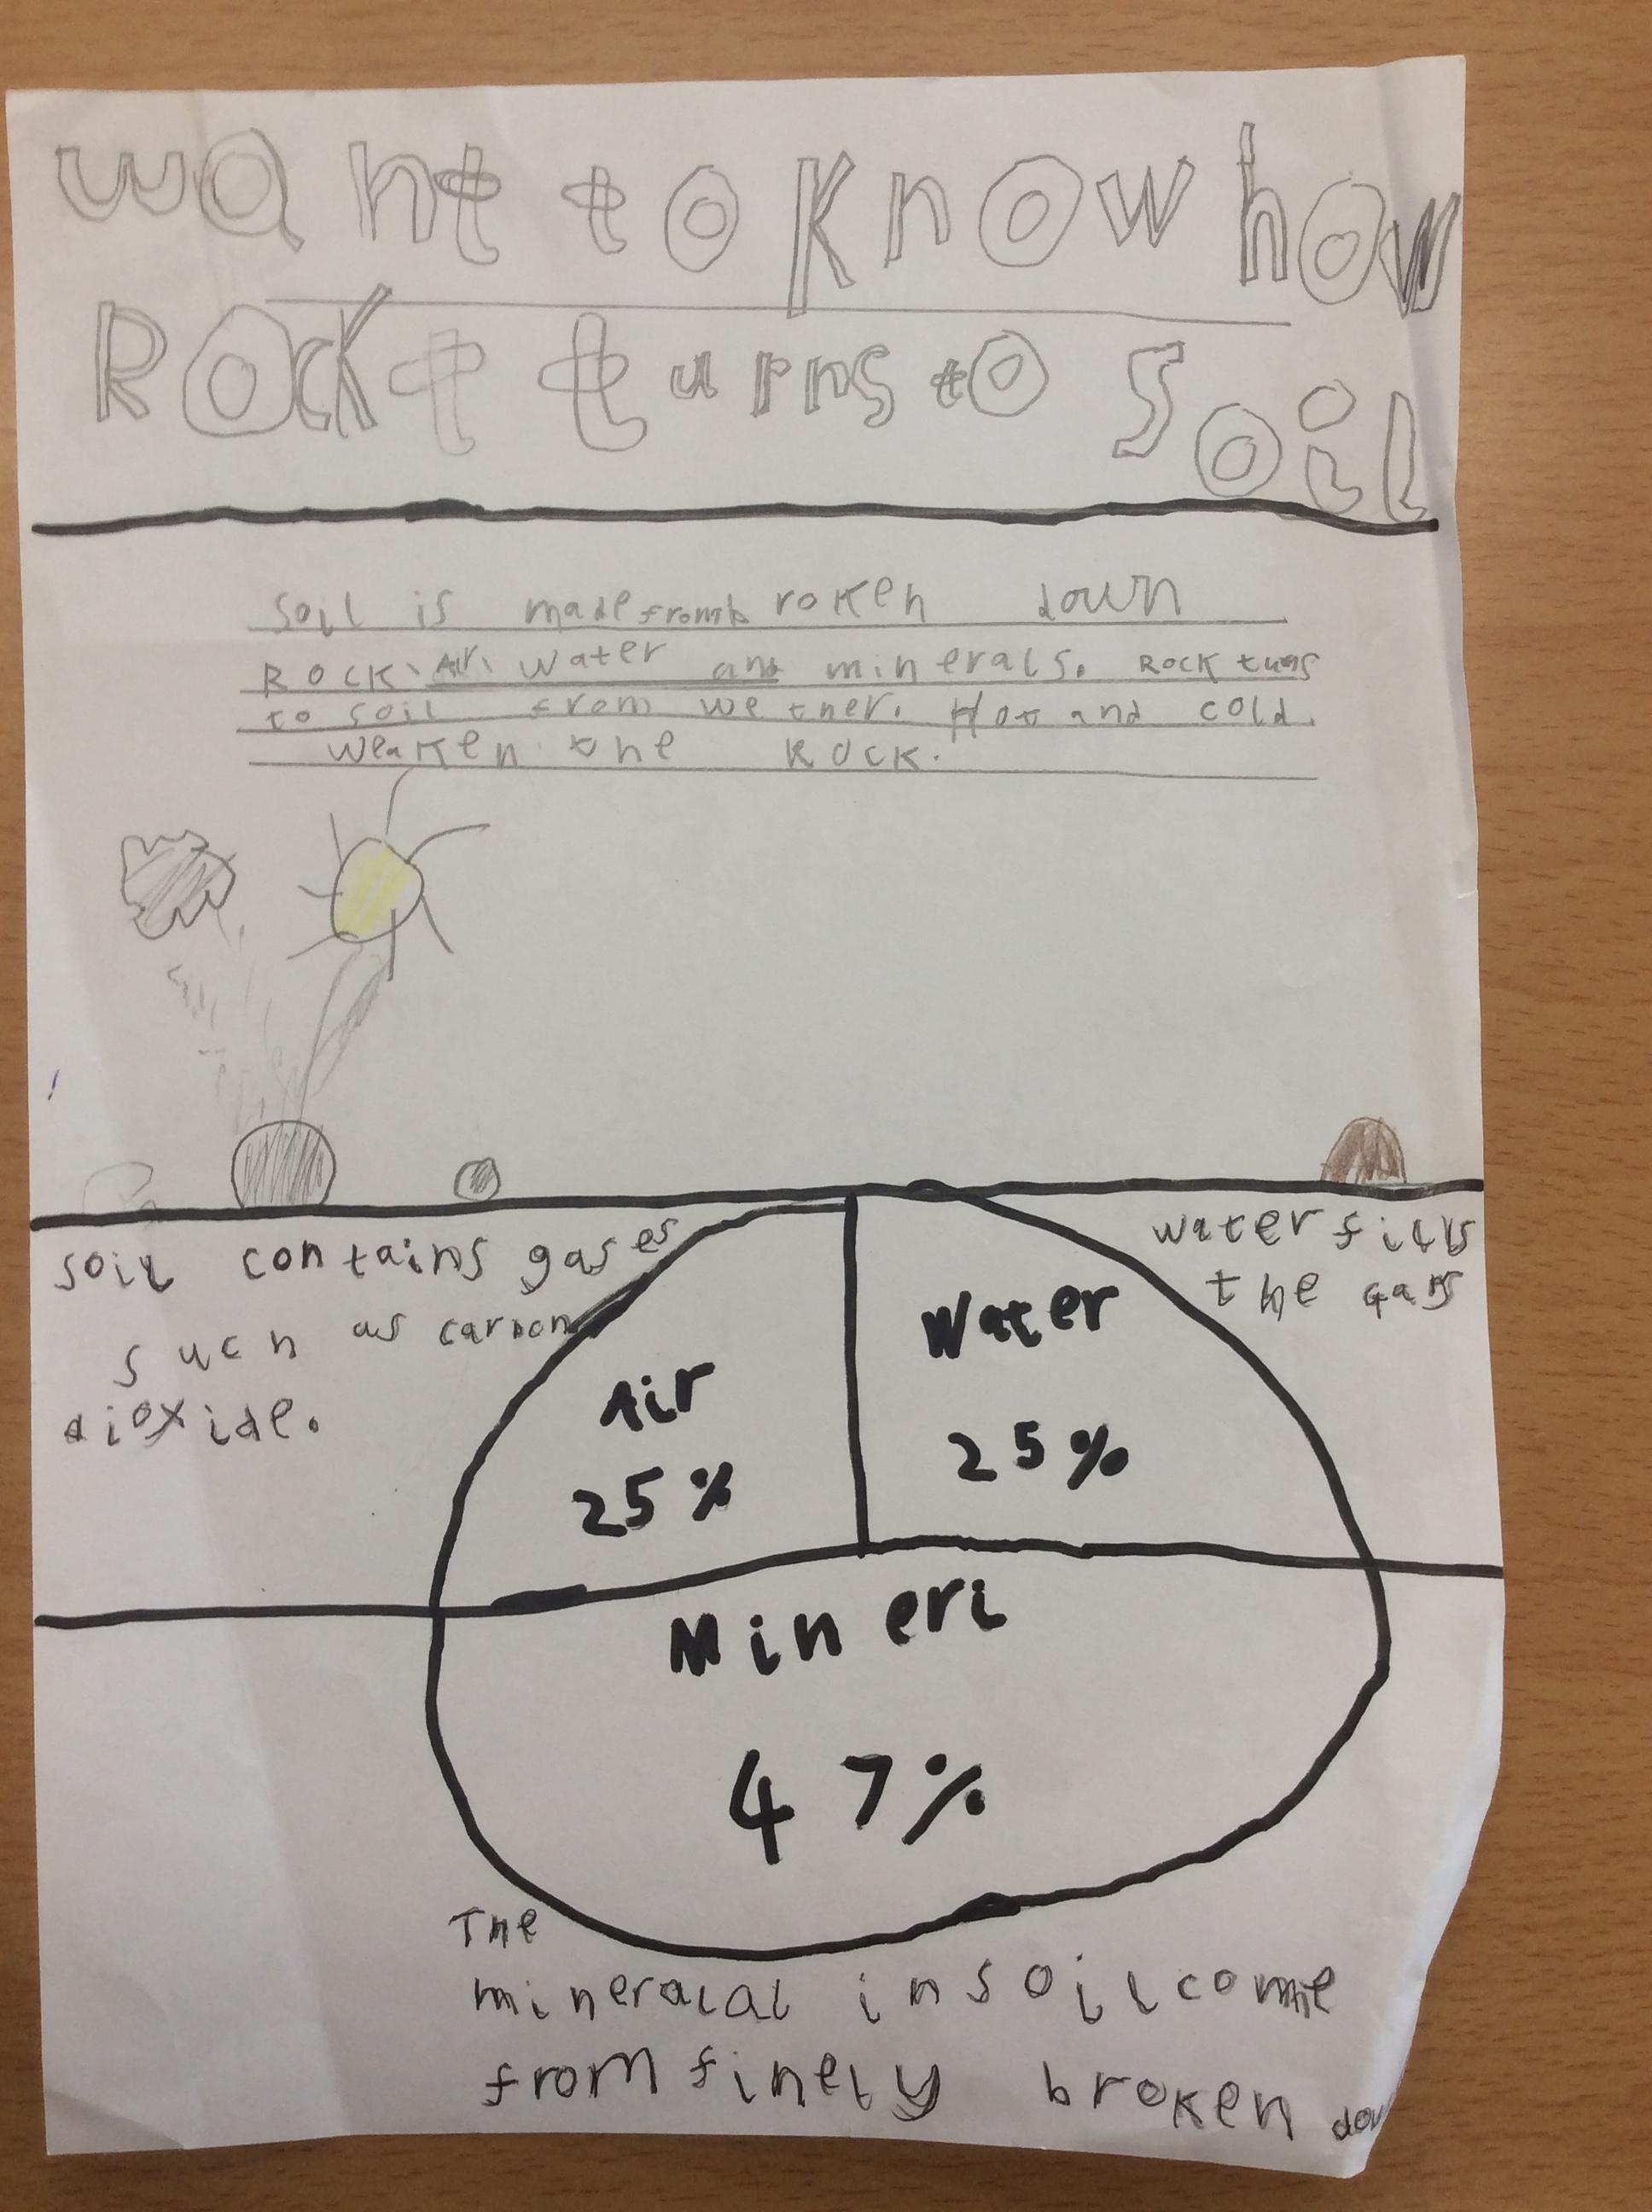 want to know how
Rockt turns to soil
soil is made from b roken down
Rock, Air, water and minerals. Rock tuns
to soil from wether. Hot and cold.
weaken the Rock.
soil contains gases
such as carbon
dioxide.
water fills
the gaps
Air
25%
Water
25%
Mineri
47%
The
mineralal in soil come
from finely broken dow